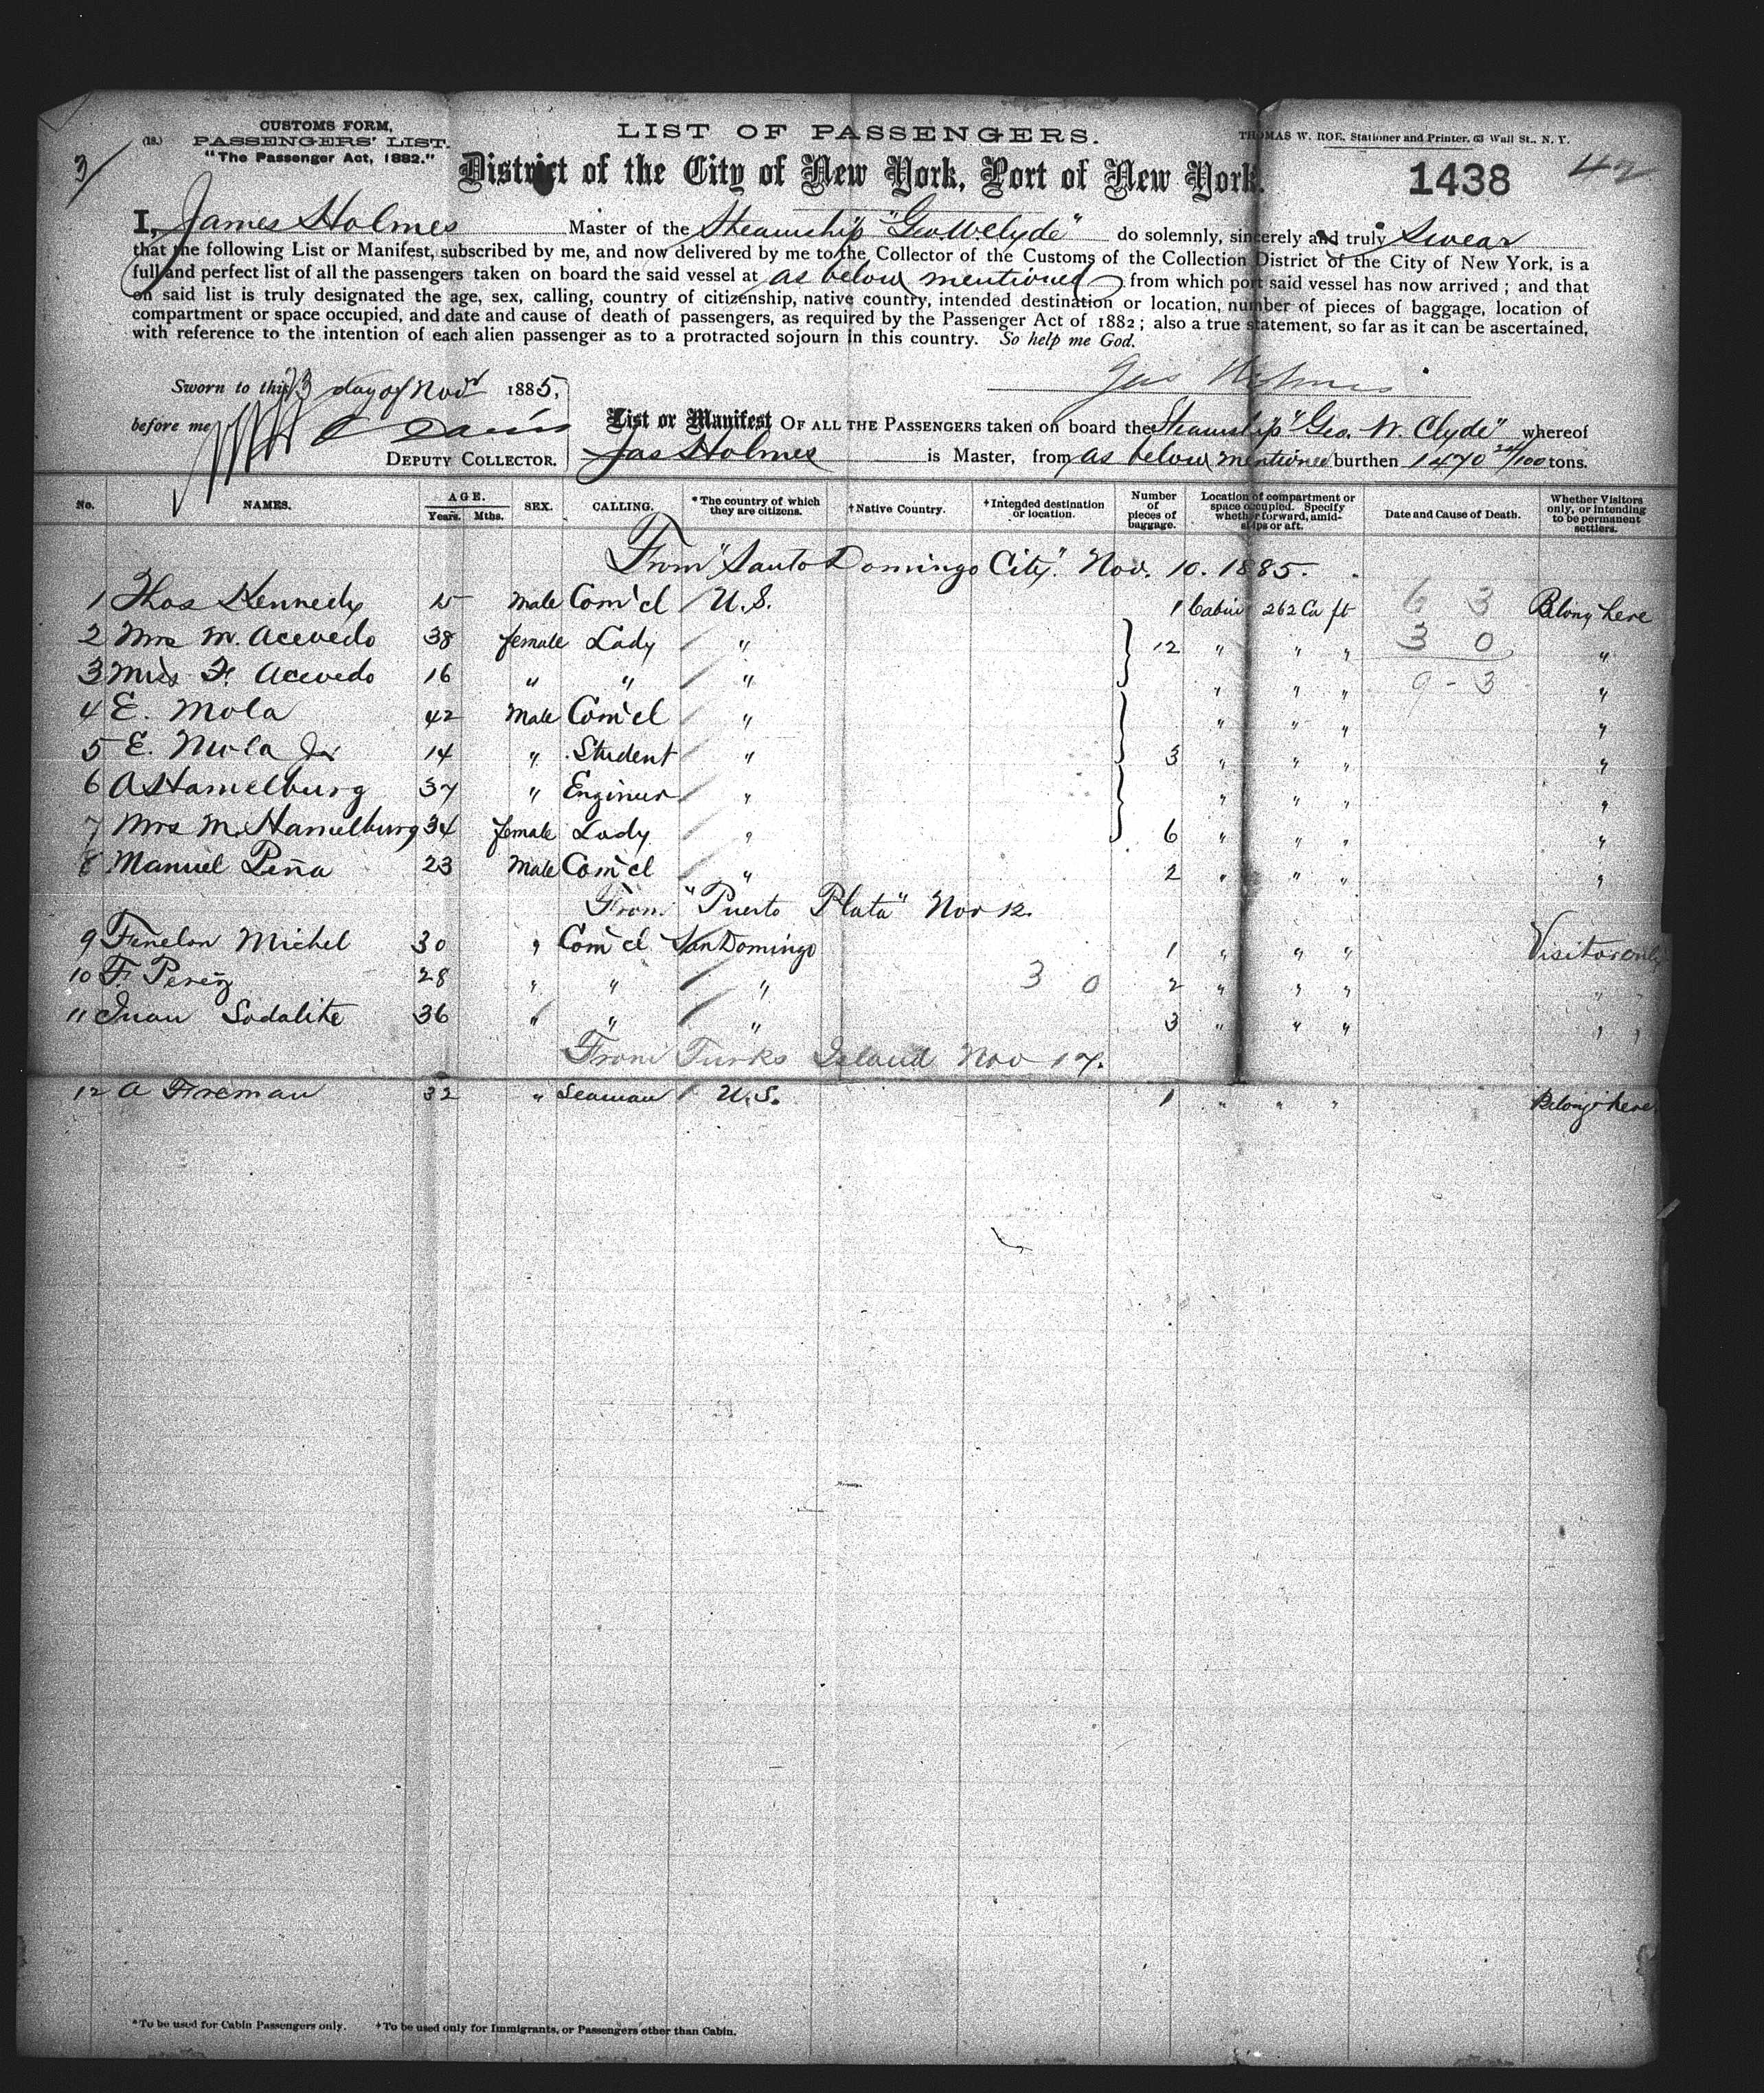 3/
(18.)
CUSTOMS FORM,
PASSENGERS' LIST.
"The Passenger Act, 1882."
LIST OF PASSENGERS.
THOMAS W. ROE, Stationer and Printer, 63 Wall St., N. Y.
District of the City of New York, Port of New York.
1438
42
I, James Holmes Master of the Steamship "Geo. W. Clyde" do solemnly, sincerely and truly Swear
that the following List or Manifest, subscribed by me, and now delivered by me to the Collector of the Customs of the Collection District of the City of New York, is a
full and perfect list of all the passengers taken on board the said vessel at as below mentioned from which port said vessel has now arrived; and that
on said list is truly designated the age, sex, calling, country of citizenship, native country, intended destination or location, number of pieces of baggage, location of
compartment or space occupied, and date and cause of death of passengers, as required by the Passenger Act of 1882; also a true statement, so far as it can be ascertained,
with reference to the intention of each alien passenger as to a protracted sojourn in this country. So help me God.
Jas Holmes
Sworn to this 23 day of Novr 1885,
before me C Davis
DEPUTY COLLECTOR.
List or Manifest OF ALL THE PASSENGERS taken on board the Steamship "Geo. W. Clyde" whereof
Jas Holmes is Master, from as below mentioned burthen 1470 24/100 tons.
No. NAMES. AGE. Years. Mths. SEX. CALLING. *The country of which they are citizens. †Native Country. †Intended destination or location. Number of pieces of baggage. Location of compartment or space occupied. Specify whether forward, amidships or aft. Date and Cause of Death. Whether Visitors only, or intending to be permanent settlers.
From "Santo Domingo City." Nov. 10. 1885.
1 Thos Kennedy 15 Male Com'cl / U.S. 1 Cabin 262 Cu ft 6 3 Belong here
2 Mrs M. Acevedo 38 female Lady / " 12 " " " 3 0 "
3 Miss F. Acevedo 16 " " / " " " " 9 - 3 "
4 E. Mola 42 Male Com'cl / " " " " "
5 E. Mola Jr 14 " Student / " 3 " " " "
6 A Hamelburg 37 " Engineer / " " " " "
7 Mrs M. Hamelburg 34 female Lady / " 6 " " " "
8 Manuel Peña 23 Male Com'cl / " 2 " " " "
From "Puerto Plata" Nov 12.
9 Fenelon Michel 30 " Com'cl San Domingo 1 " " " Visitor only
10 F. Perez 28 " " / " 3 0 2 " " " " "
11 Juan Sodalite 36 " " / " 3 " " " " "
From Turks Island Nov 17.
12 A Fireman 32 " Seaman / U.S. 1 " " " Belongs here
*To be used for Cabin Passengers only. †To be used only for Immigrants, or Passengers other than Cabin.